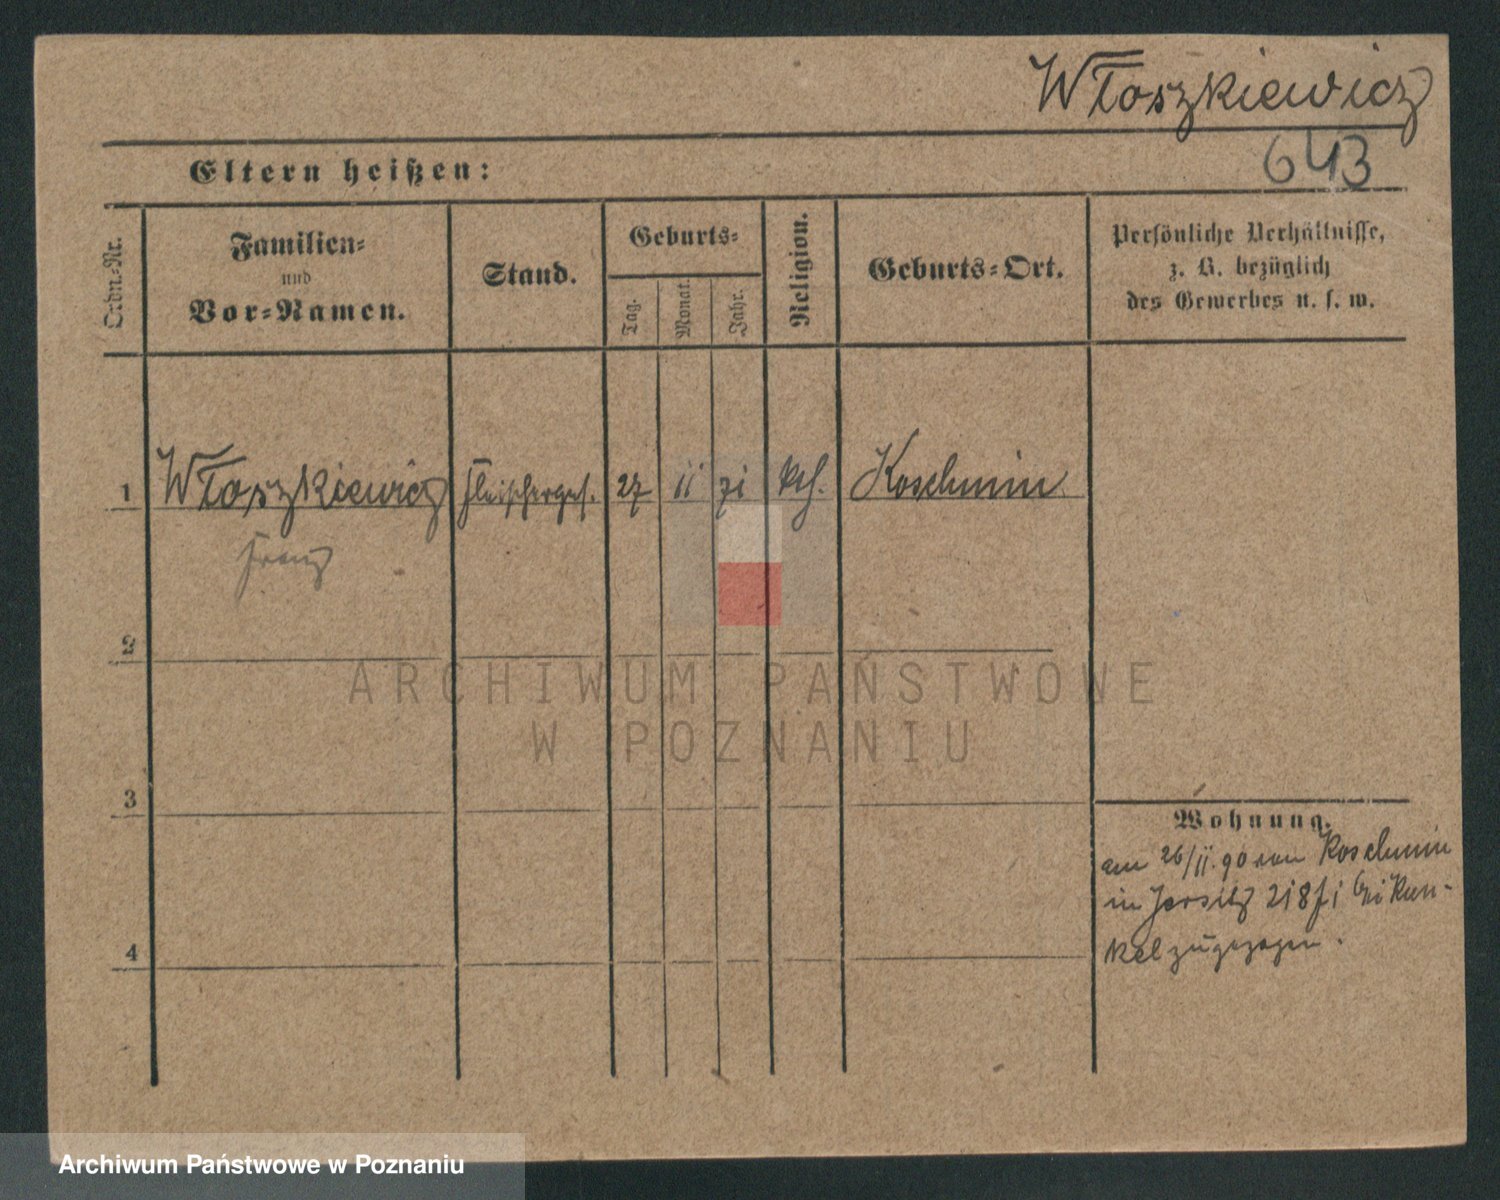 Włoszkiewicz
643
Eltern heißen:
Ordn.-Nr.
Familien-
und
Vor-Namen.
Stand.
Geburts-
Tag.
Monat.
Jahr.
Religion.
Geburts-Ort.
Persönliche Verhältnisse,
z. B. bezüglich
des Gewerbes u. s. w.
1 Włoszkiewicz Fleischerges. 27 11 71 kth. Koschmin
Franz
2
3
4
Wohnung.
am 26/11.90 von Koschmin
in Jersitz 218 f i bei Kun-
kel zugezogen.
ARCHIWUM PAŃSTWOWE
W POZNANIU
Archiwum Państwowe w Poznaniu